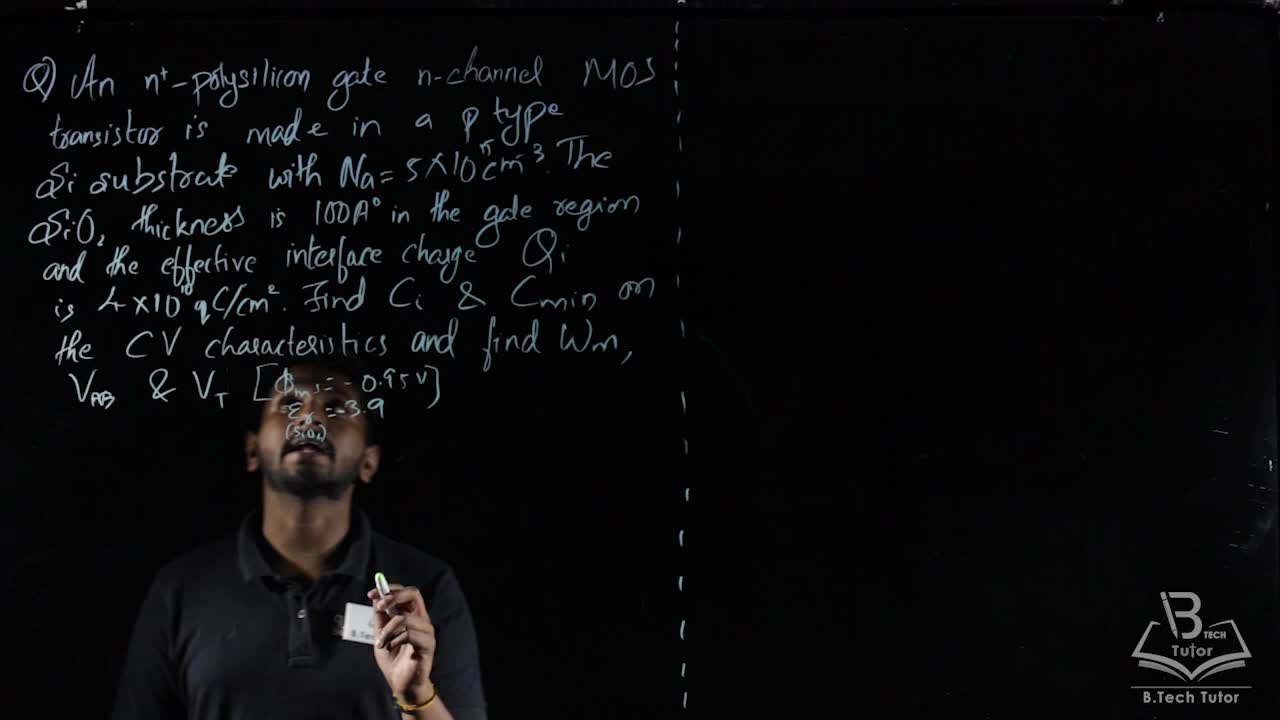 Q) An n⁺-polysilicon gate n-channel MOS
transistor is made in a p type
Si substrate with Na = 5×10¹⁵cm⁻³. The
SiO₂ thickness is 100A° in the gate region
and the effective interface charge Qi
is 4×10¹⁰ qC/cm². Find Ci & Cmin on
the CV characteristics and find Wm,
V_FB & V_T [Φms = -0.95V]
εr = 3.9
(SiO₂)
B.Te
B
TECH
Tutor
B.Tech Tutor